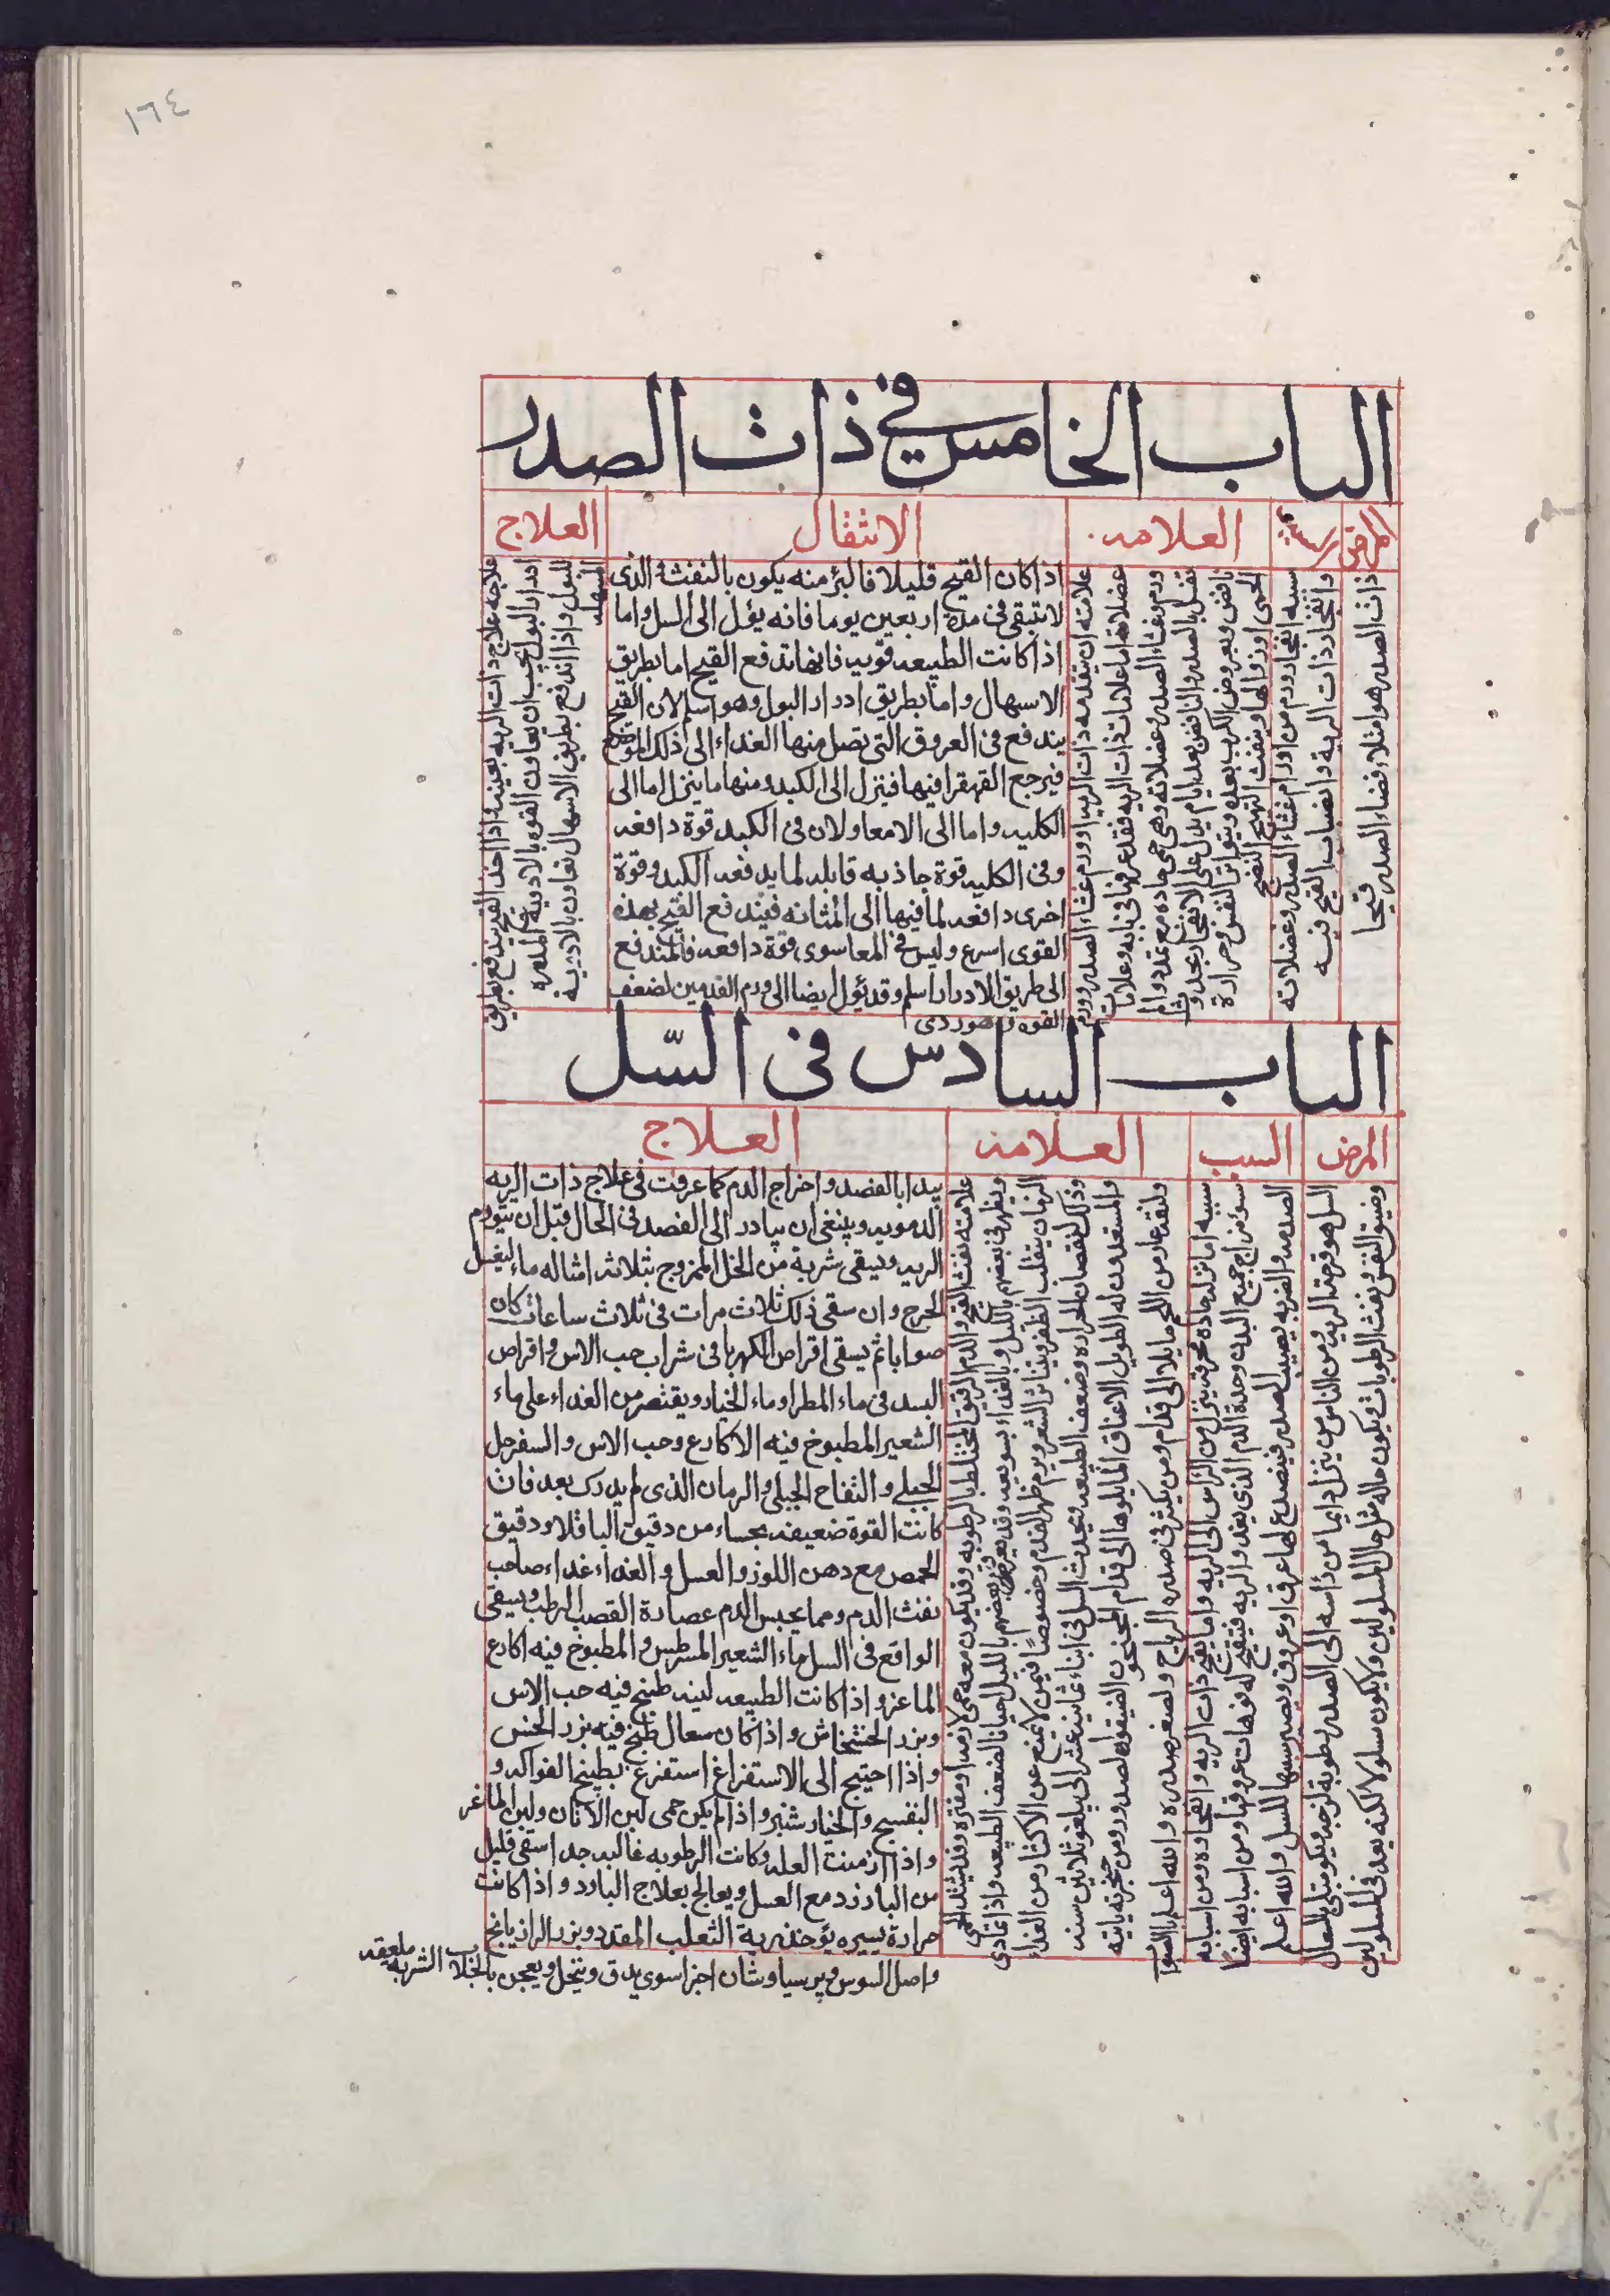 ١٦٤
الباب الخامس في ذات الصدر
المرض
السبب
العلامه
الانتقال
العلاج
ذات الصدر هو امتلاء فضاء الصدر قيحا
سببه انفجار ورم من اورام غشاء الصدر وعضلاته
وانفجار ذات الرية وانصباب القيح فيه
علامته ان يتقدمه ذات الريه او ورم غشاء الصدر وورم
عضلاته اما علامات ذات الريه فقد عرفتها في بابه وعلامات
ورم غشاء الصدر وعضلاته وهي حمى حاده مع تمدد والم
ثقل بالصدر والنافض بعد ايام يدل على الانفجار
نافض وبعروض الكرب بعده وبتواتر النفس وحرارة
الحمى اوردوالها وبنفث القيح النضيج
اذا كان القيح قليلا فالبرء منه يكون بالنفث الذى
لا تبقى في مدة اربعين يوما فانه يؤل الى السل واما
اذا كانت الطبيعه قويه فانها تدفع القيح اما بطريق
الاسهال واما بطريق ادرار البول وهو اسلم لان القيح
يندفع في العروق التى تصل منها الغداء الى ذلك الموضع
فيرجع القهقرا فيها فينزل الى الكبد ومنها ما ينزل اما الى
الكليه واما الى الامعا ولان في الكبد قوة دافعه
وفى الكليه قوة جاذبه قابله لما يدفعه الكبد وقوة
اخرى دافعه لما فيها الى المثانه فيندفع القيح بهذه
القوى اسرع وليس في المعا سوى قوة دافعه فالمندفع
الى طريق الادرار اسلم وقد يؤل ايضا الى ورم القدمين لضعف
القوه وهو ردى
علاجه علاج ذات الريه بعينه واذا اخذ القيح يندفع بطريق
ادرار البول يجب ان يعاون القوه بالادوية المدره
للبول واذا اندفع بطريق الاسهال تعاون بالادوية
المسهله
الباب السادس فى السّل
المرض
السبب
العلامه
العلاج
السل هو قرحة الريه ومن الناس من ينزل دايما من رأسه الى الصدر رطوبة لزجه ويبتلى بالسعال
وضيق النفس ونفث الرطوبات يكون حاله مثل حال المسلولين ولا يكون مسلولا لكنه يعد فى المسلولين
سببه اما نزله حاده محرقه ينزل من الراس الى الريه واما تقيح ذات الريه وانفجاره ومن اسبابه
سوء مزاج جميع البدن وحدة الدم الذى يغدو الريه فيتقيح له فوهات عروقها ومن اسبابه ايضا
الصدمه والضربه يصيب الصدر فينصدع لها عرق او عروق ويصير سببها للسل والله اعلم
علامته نفث القيح والدم الرقيق المختلط بالرطوبه وقد يكون معه حمى لازمه او مفتره وقد يشتد الحمى
ويظهر في بعضهم بالليل وبالغداء بسويعه وقد يعرق بعضهم بالليل احيانا لضعف الطبيعه واذا تمادى
الزمان يتقلب الظفر ويتناثر الشعر ويرم ظهر القدم وخصوصا فيمن لا يمتنع عن الاكثار من الغداء
وذلك لنقصان الحراره وضعف الطبيعه ويحدث السل فى ابناء ثمانية عشر الى يبلغو ثلاثين سنه
والمستعدون له الطويل الاعناق المايلوها الى قدام المجنحون الضيقوا الصدور ومن حنجرته ياتيه
ولنقه عار من اللحم مايلا الى قدام ومن يكثر في صدره الرياح ولصغر صدره والله اعلم بالصواب
يبدا بالفصد واخراج الدم كما عرفت فى علاج ذات الريه
الدمويه وينبغى ان يبادر الى الفصد فى الحال قبل ان تتورم
الريه ويسقى شربة من الخل الممزوج بثلاثه امثاله ماء ليغسل
الجرح وان سقى ذلك ثلاث مرات فى ثلاث ساعات كان
صوابا ثم يسقى اقراص الكهربا فى شراب حب الاس واقراص
البسد فى ماء المطر او ماء الخيار ويقتصر من الغداء على ماء
الشعير المطبوخ فيه الاكارع وحب الاس والسفرجل
الجبلي والتفاح الجبلي والرمان الذى لم يدرك بعد فان
كانت القوة ضعيفه بحساء من دقيق الباقلا ودقيق
الحمص مع دهن اللوز والعسل والغداء غداء صاحب
نفث الدم ومما يحبس الدم عصارة القصب الرطب ويسقى
الواقع فى السل ماء الشعير المسرطس والمطبوخ فيه اكارع
الماعز واذا كانت الطبيعه لينه طبخ فيه حب الاس
وبزر الخشخاش واذا كان سعال طبخ فيه بزر الخس
واذا احتيج الى الاستفراغ استفرغ بطبيخ الفواكه و
البنفسج والخيار شنبر واذا لم يكن حمى لبن الاتان ولبن الماعز
واذا ازمنت العله وكانت الرطوبه غالبه جدا سقى قليل
من البارزد مع العسل ويعالج بعلاج البارد واذا كانت
حرارة يسيره يؤخذ رية الثعلب المقدد وبزر الرازيانج
واصل السوس وپرسياوشان اجزا سوى يدق وينخل ويعجن بالجلاب الشربه ملعقه